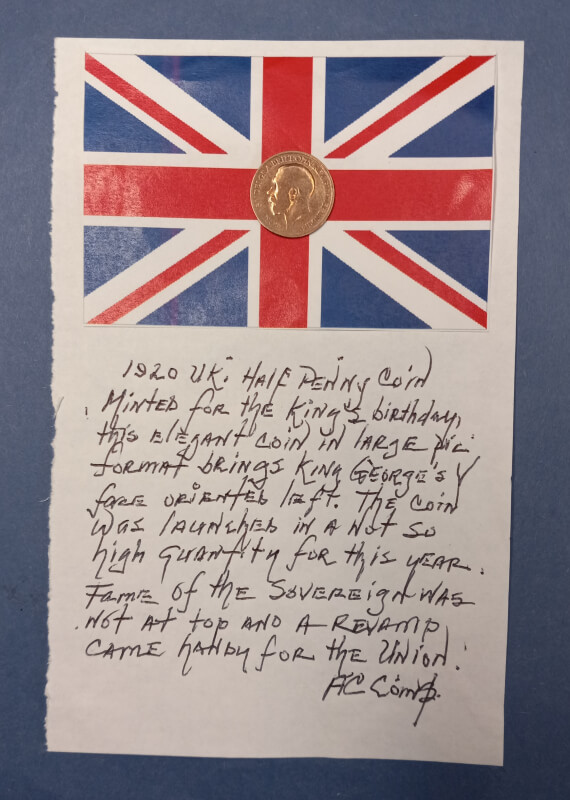 1920 UK: Half Penny Coin
Minted for the King's birthday,
this elegant coin in large pic
format brings King George's V
face oriented left. The coin
was launched in a not so
high quantity for this year.
Fame of the Sovereign was
not at top and a revamp
came handy for the Union.
AC Comp.